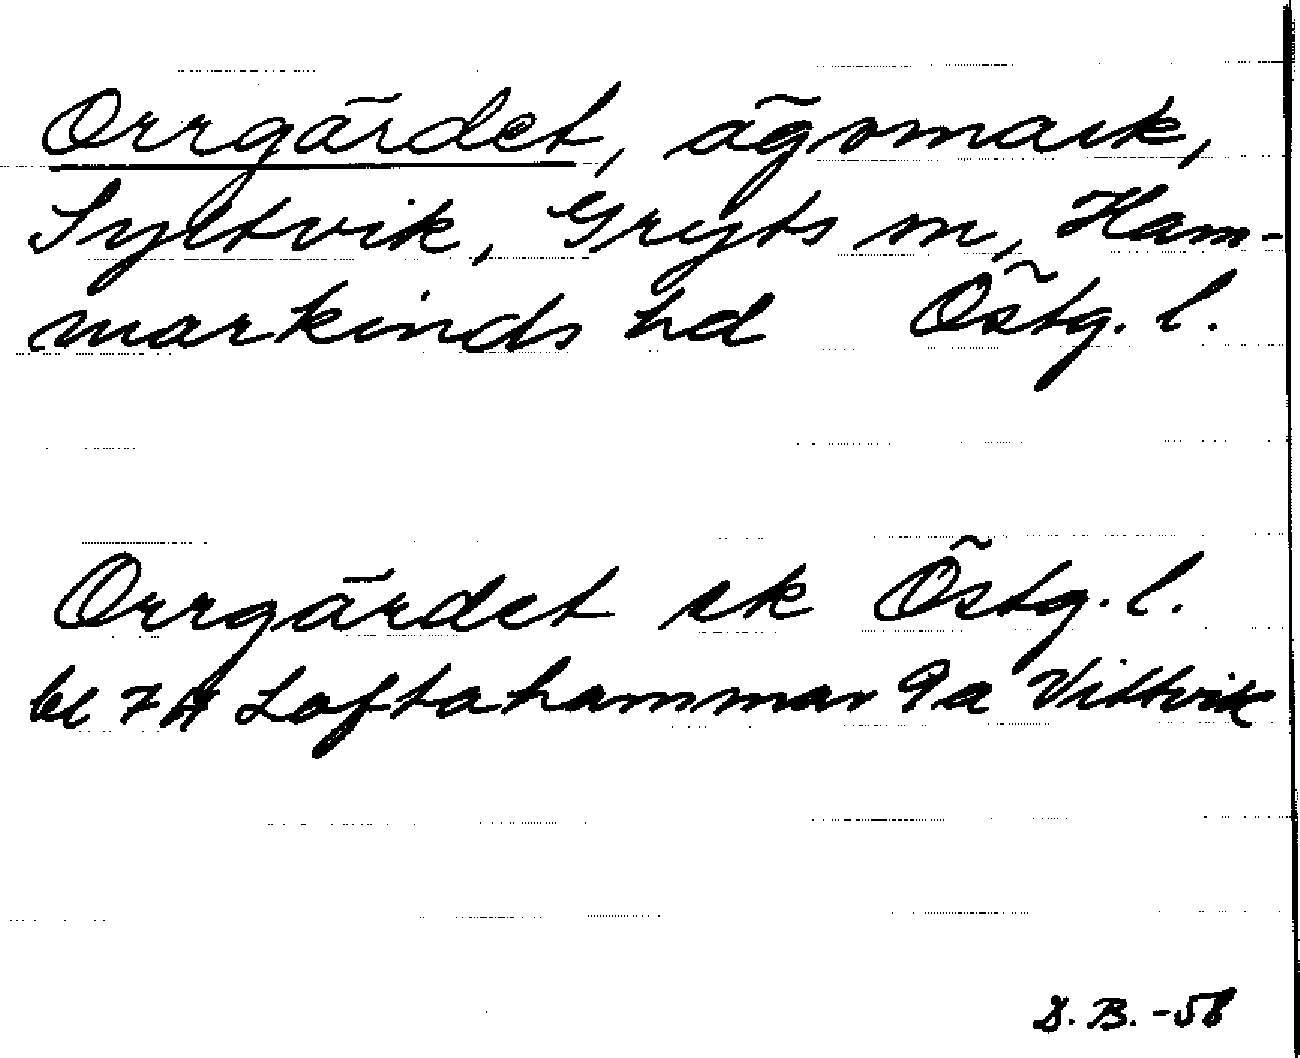 Orrgärdet, ägomark,
Syltvik, Gryts sn, Ham-
markinds hd Östg. l.
Orrgärdet ek Östg. l.
bl 7H Loftahammar 9a Vittvik
B. -58